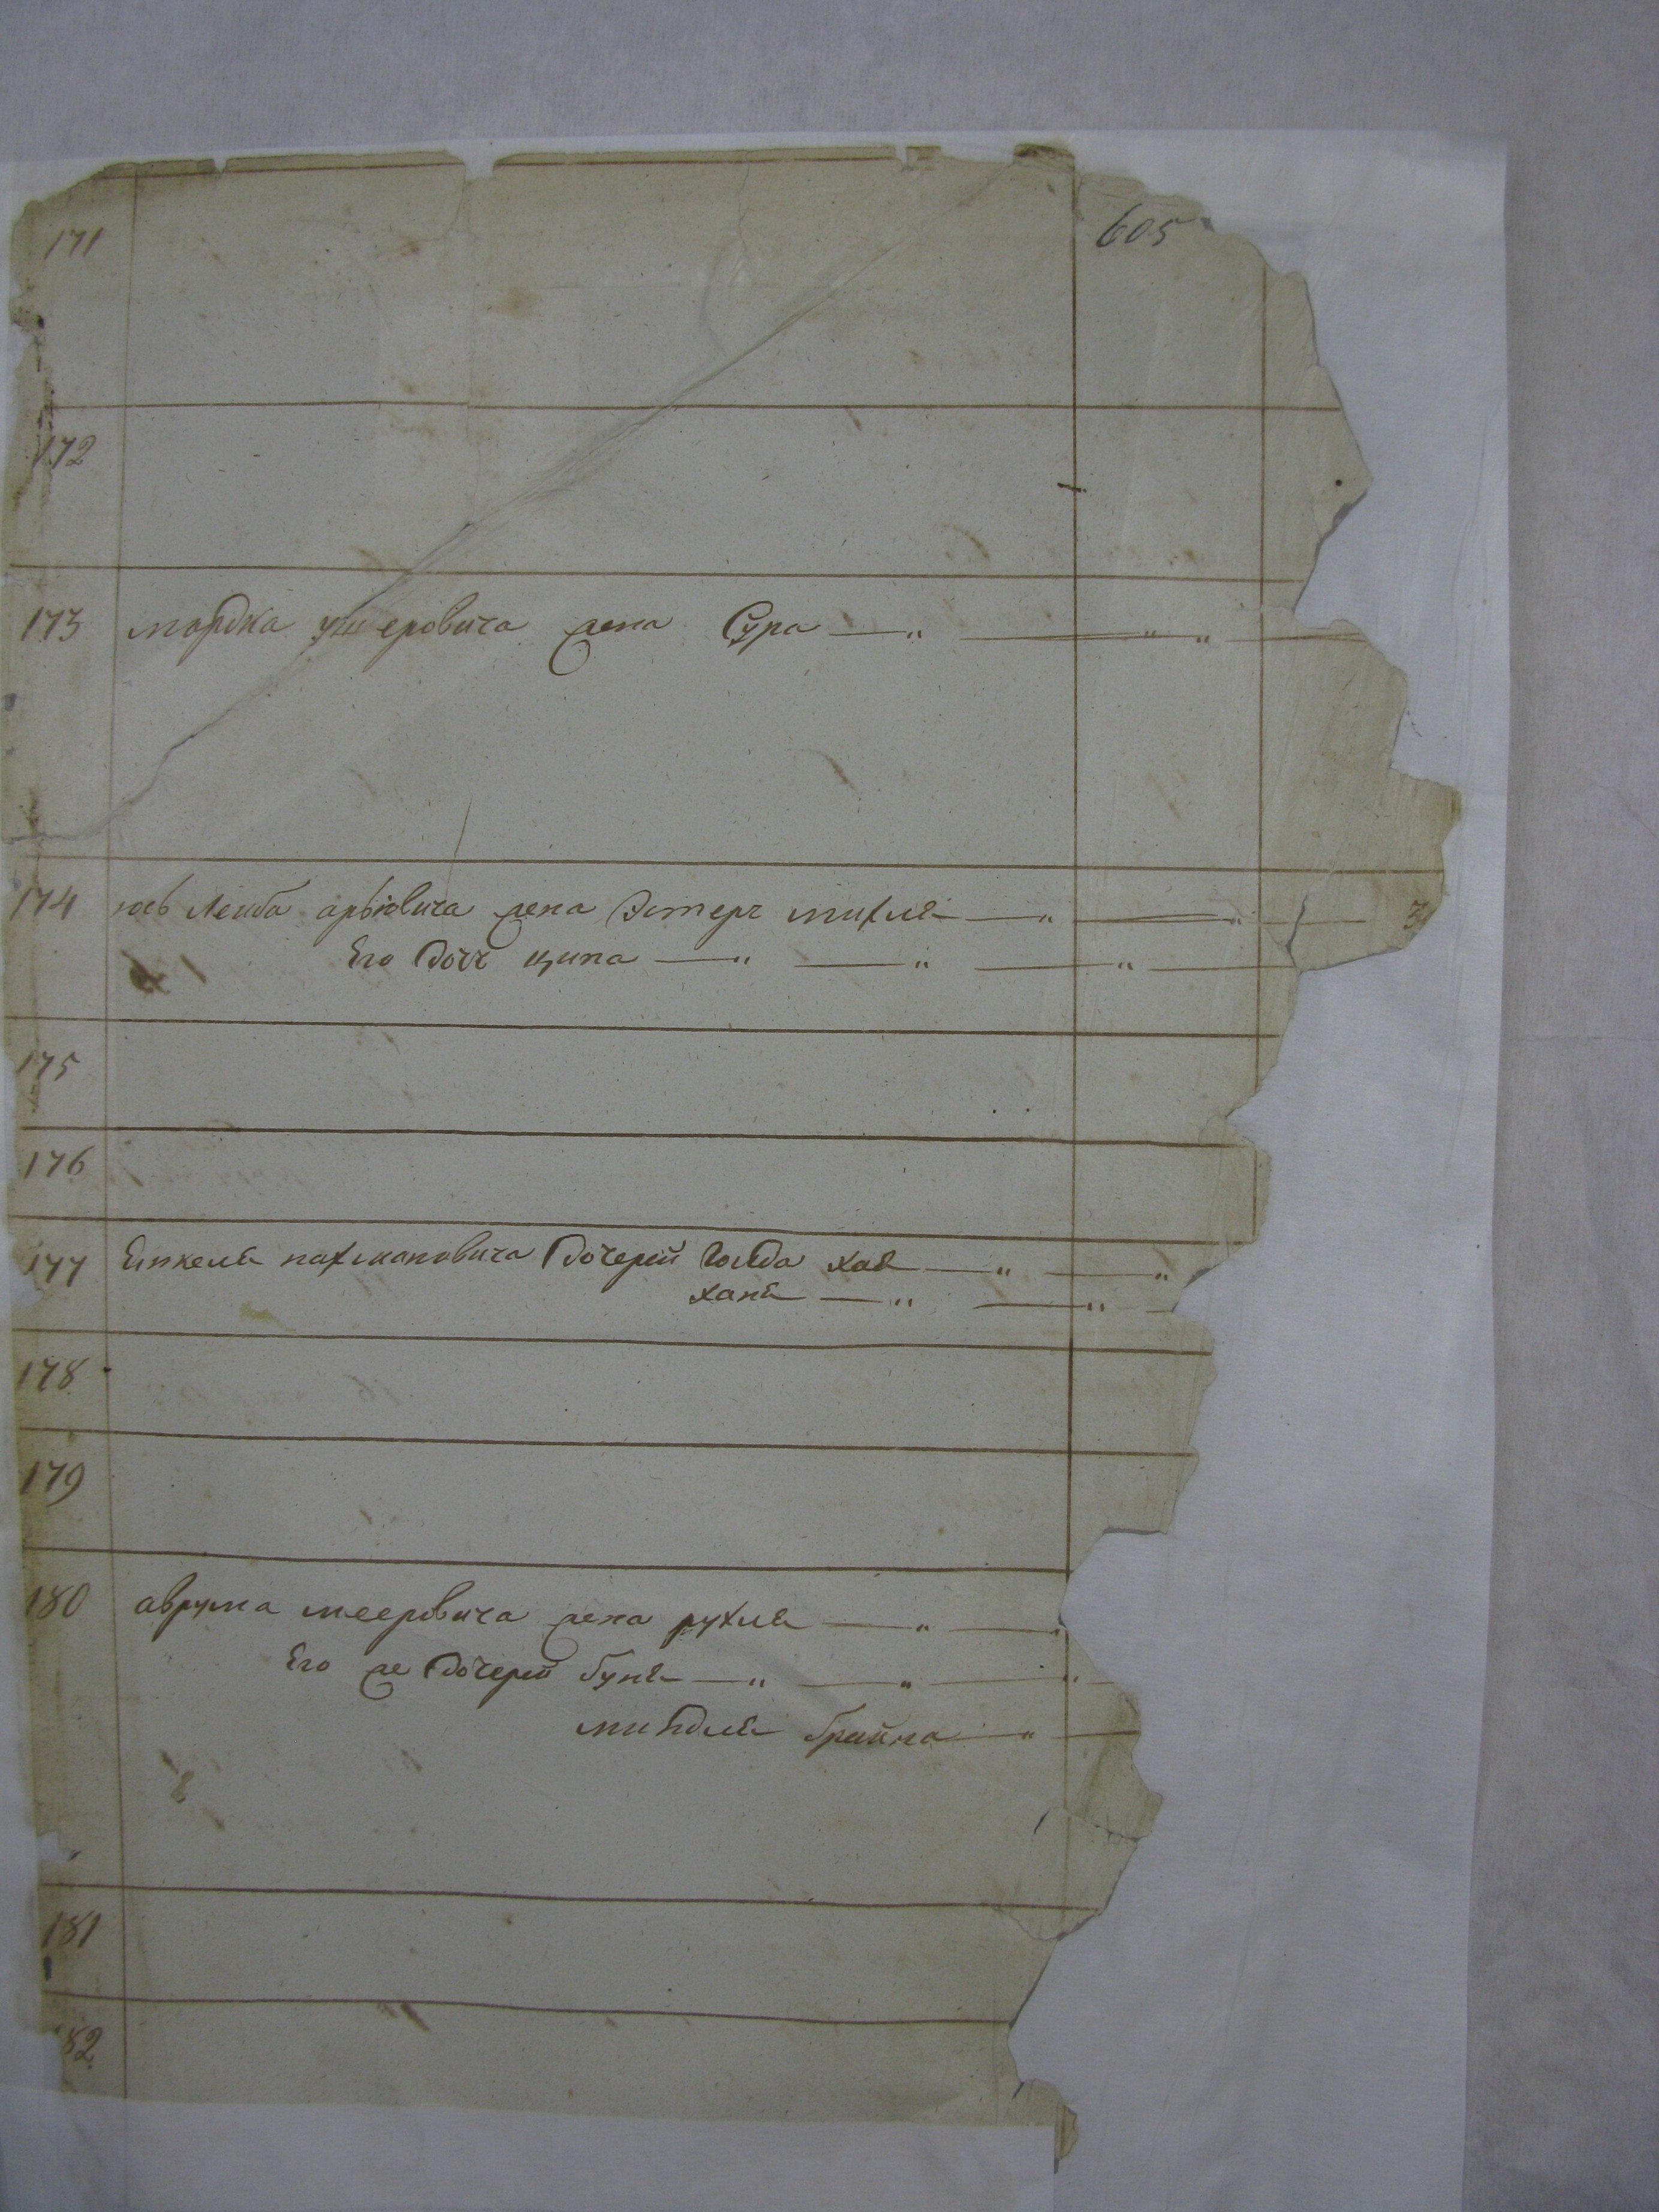 605
171
172
173 мордка ушеровича жена Сура — " — " "
174 юсь Лейба арьювича жена Эстеръ михля — " — " — 3
Его дочь ципа — " — " — " —
175
176
177 Енкеля нахмановича дочерей Голда хая — " — "
ханя — " — " —
178
179
180 аврума мееровича жена рухля — " — "
Его же дочерей буня — " — " — " —
миндля брайна — " —
181
82